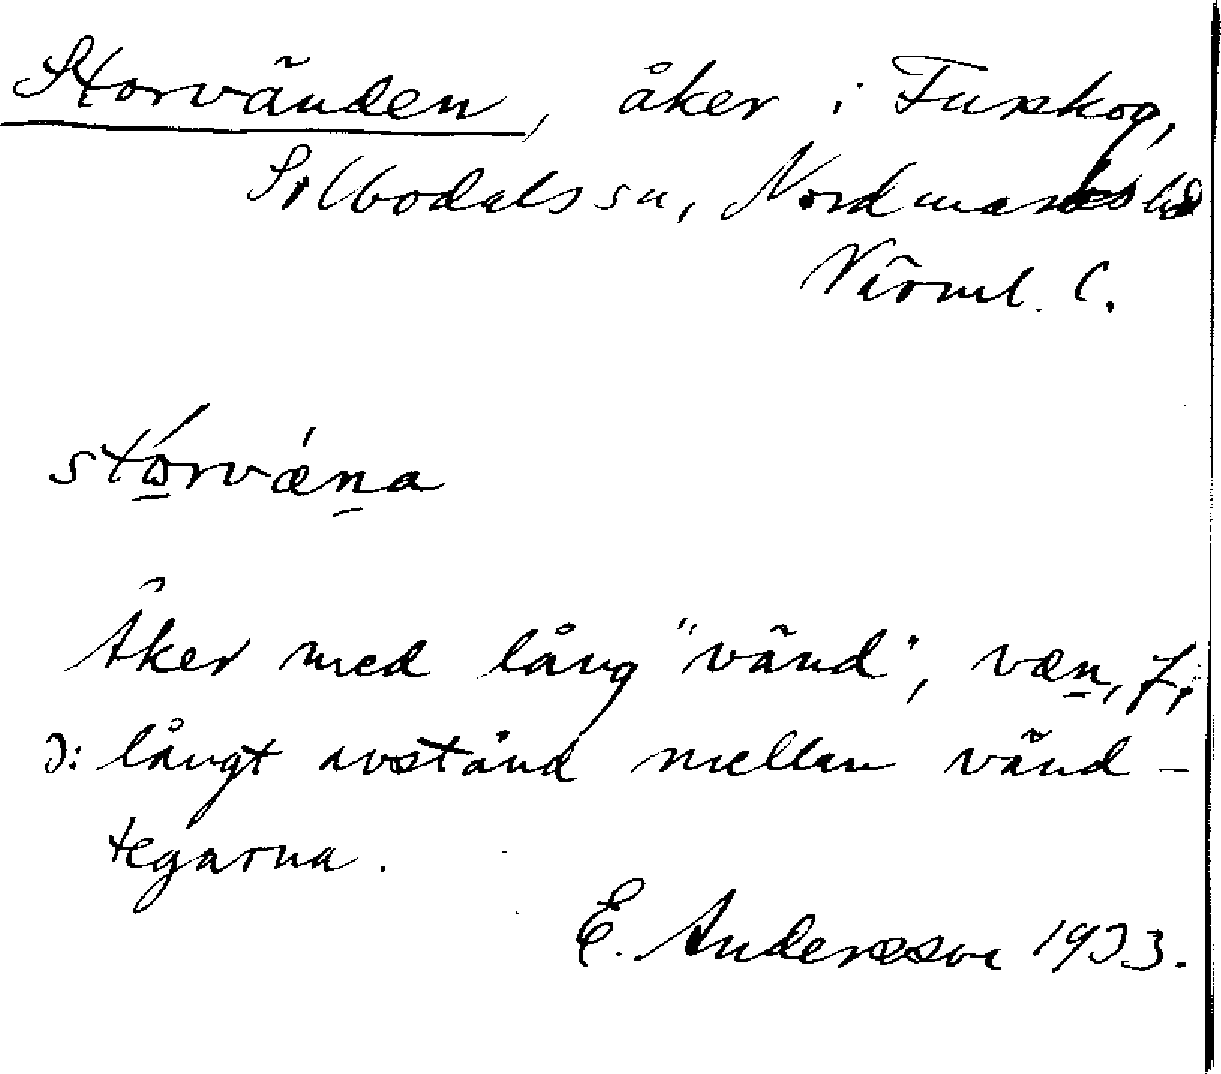 Storvänden, åker i Furskog,
Silbodals sn, Nordmarks hd
Värml. l.
stórvǽna
Åker med lång "vänd", væn, f,
ɔ: långt avstånd mellan vänd-
tegarna.
E. Andersson 1933.